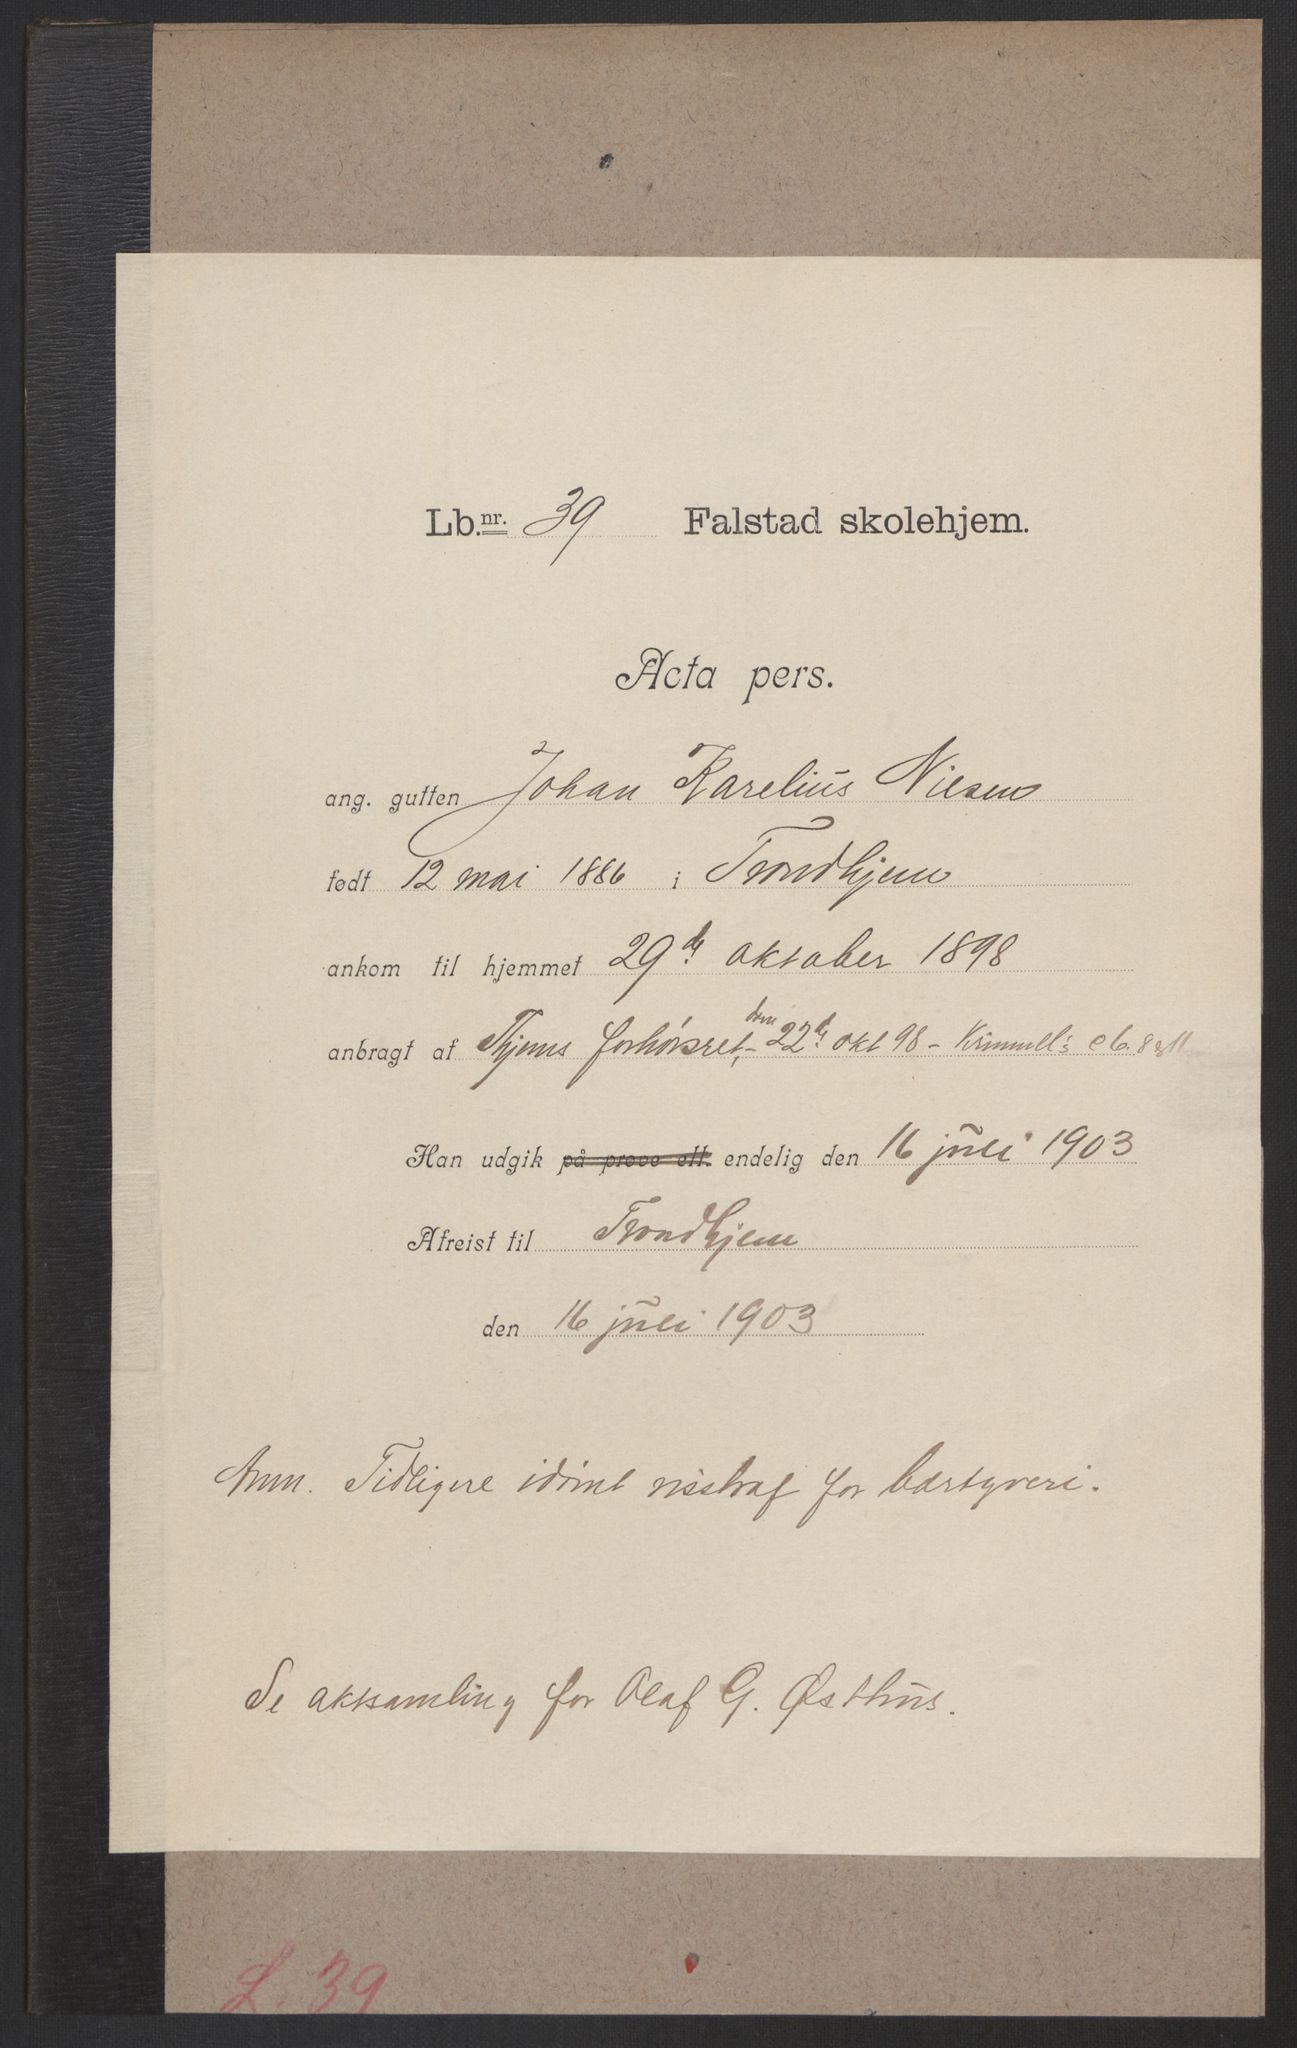 Lb.nr. 39 Falstad skolehjem.
Acta pers.
ang. gutten Johan Karelius Nilsen
født 12 mai 1886 i Trondhjem
ankom til hjemmet 29de oktober 1898
anbragt af Thjems forhørsret, dom 22de okt 98 – Kriminell's c 6. § 11
Han udgik på prøve ell. endelig den 16 juli 1903
Afreist til Trondhjem
den 16 juli 1903
Anm. Tidligere idømt risstraf for bærtyveri.
Se aktsamling for Olaf G. Østhus.
L. 39